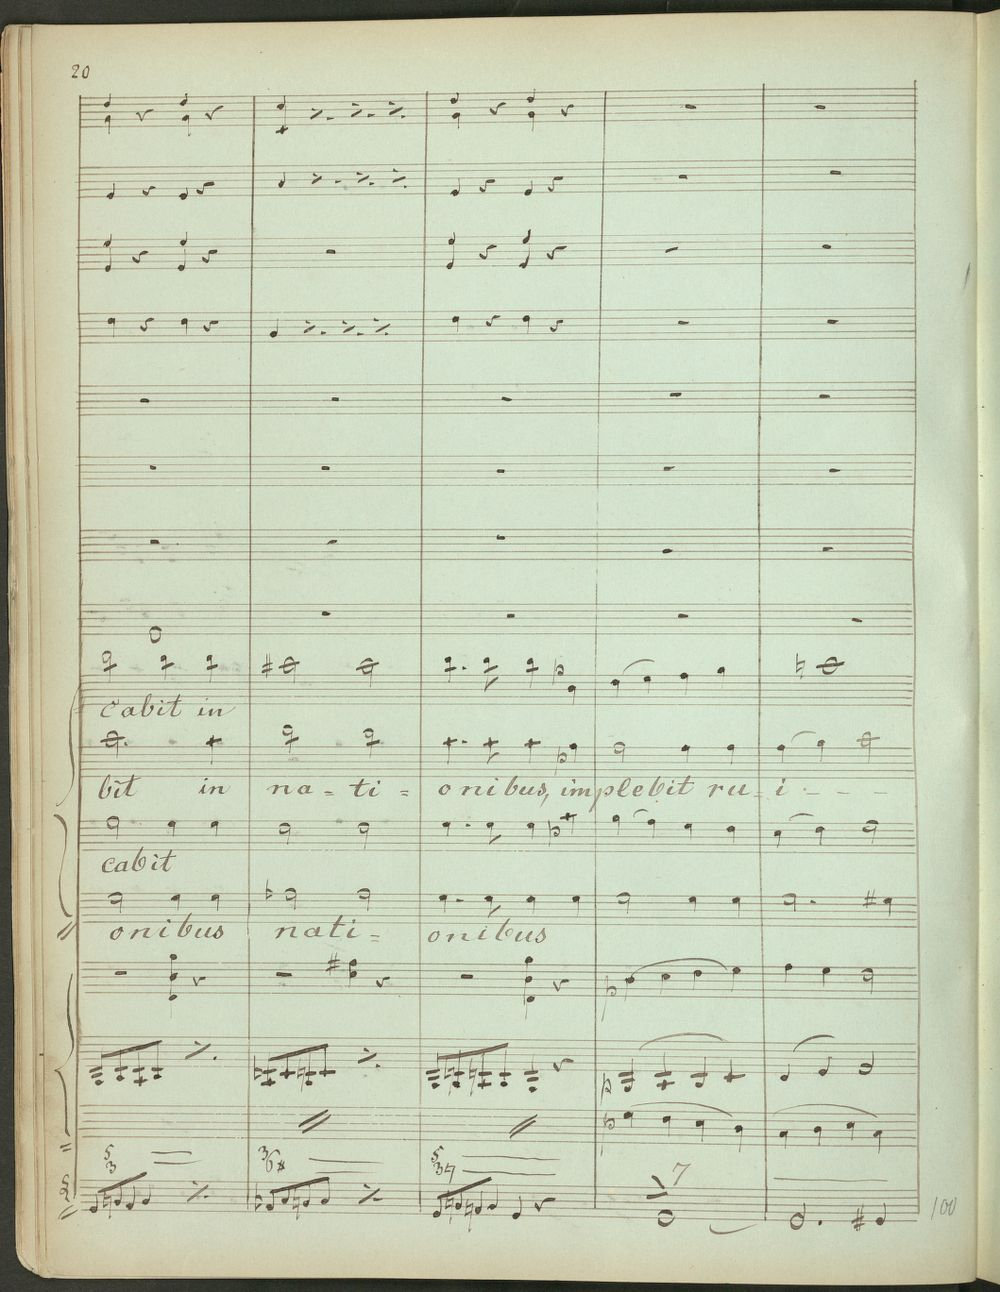 20
cabit in
bit in na = ti = onibus, implebit ru - i - - - -
cabit
onibus nati = onibus
5 3
3 6#
5 3 4
7
100